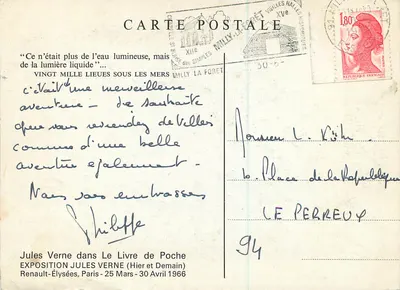 CARTE POSTALE
"Ce n'était plus de l'eau lumineuse, mais
de la lumière liquide"...
VINGT MILLE LIEUES SOUS LES MERS
c'était une merveilleuse
aventure - Je souhaite
que vous reviendez de Villers
comme d'une belle
aventure également -
Nous vous embrassons
Philippe
Jules Verne dans Le Livre de Poche
EXPOSITION JULES VERNE (Hier et Demain)
Renault-Élysées, Paris - 25 Mars - 30 Avril 1966
MILLY LA FORET
XIIe
XVe
1,80
Monsieur L.
Place de la République
LE PERREUX
94